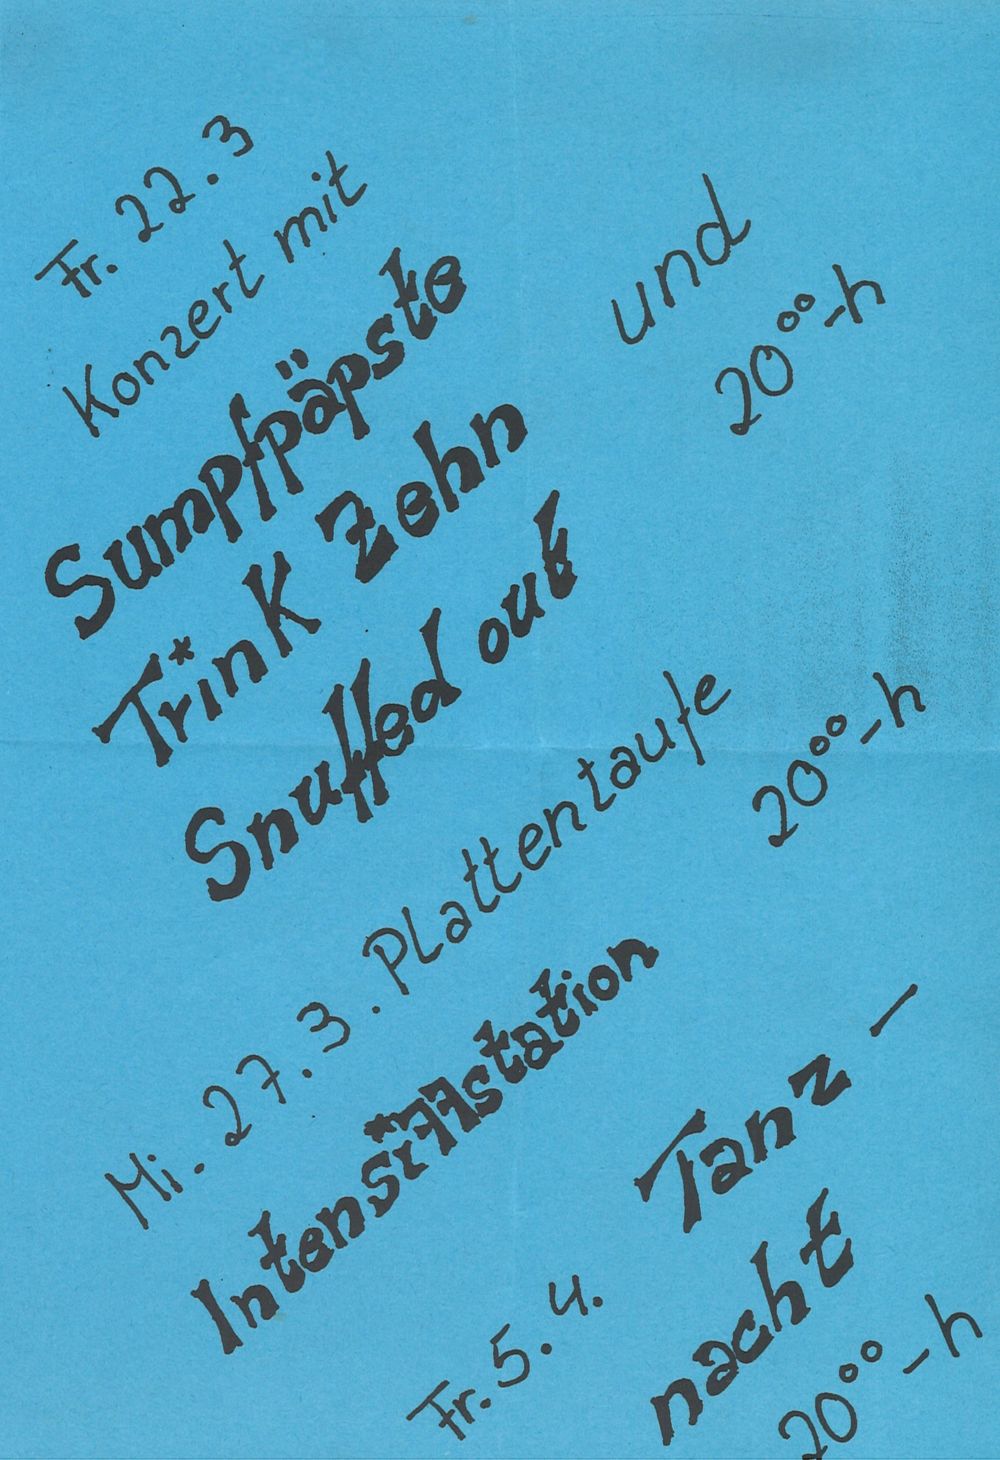 Fr. 22. 3
Konzert mit
Sumpfpäpste
Trink Zehn und
Snuffed out 20⁰⁰-h
Mi. 27. 3. Plattentaufe
Intensivstation 20⁰⁰-h
Fr. 5. 4. Tanz-
nacht
20⁰⁰-h